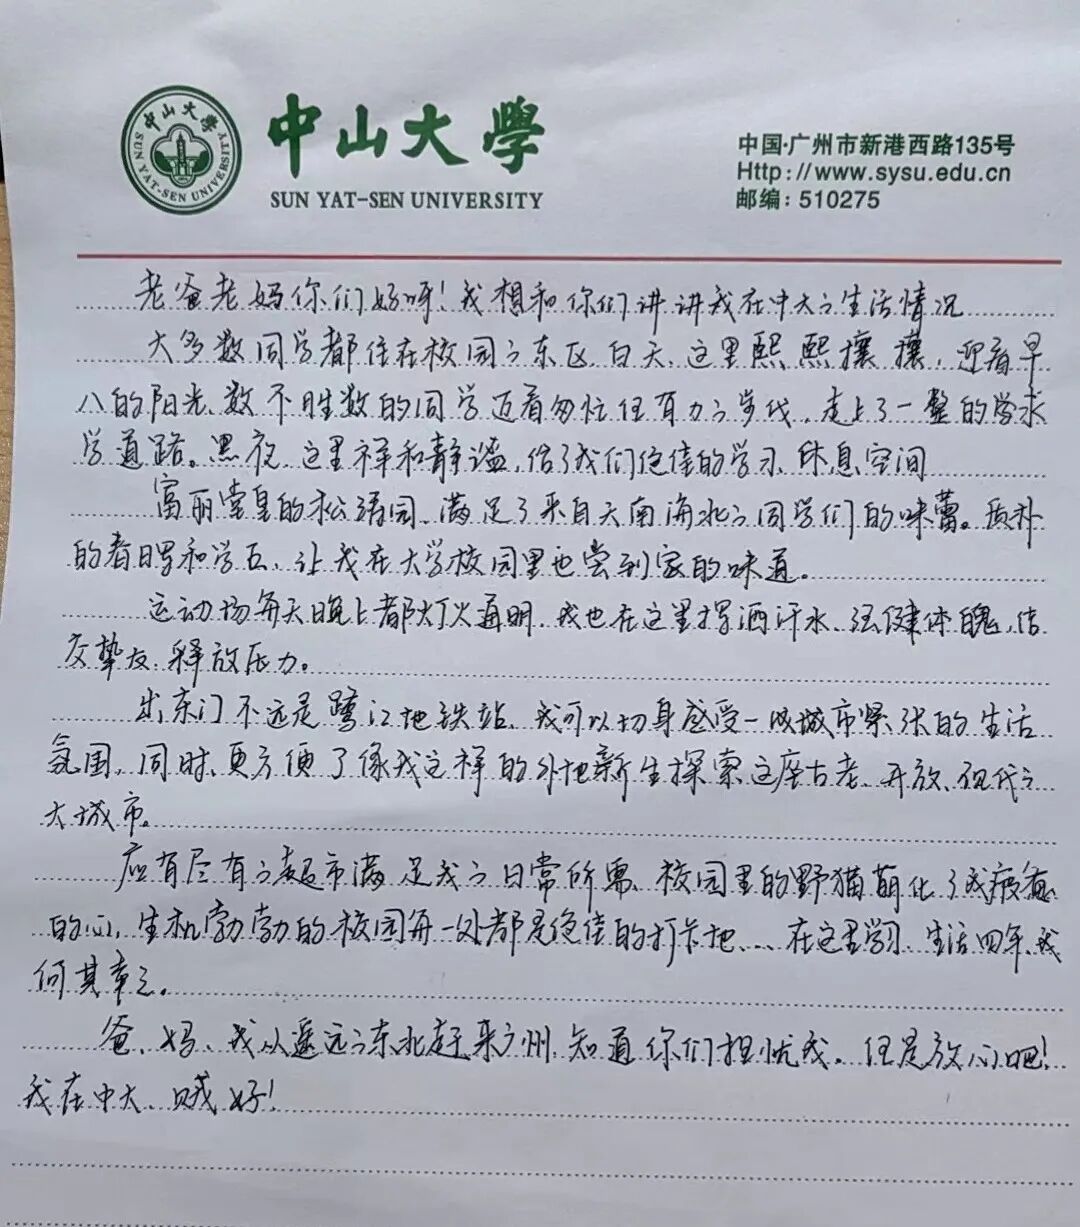 中山大学
SUN YAT-SEN UNIVERSITY
中山大學
SUN YAT-SEN UNIVERSITY
中国·广州市新港西路135号
Http://www.sysu.edu.cn
邮编：510275
老爸老妈你们好呀！我想和你们讲讲我在中大之生活情况
大多数同学都住在校园之东区。白天，这里熙熙攘攘，迎着早
八的阳光，数不胜数的同学迈着匆忙但有力之步伐，走上了一整的学求
学道路。黑夜，这里祥和静谧，给了我们绝佳的学习、休息空间
富丽堂皇的松涛园，满足了来自天南海北之同学们的味蕾。质朴
的春晖和学五，让我在大学校园里也尝到家的味道。
运动场每天晚上都灯火通明，我也在这里挥洒汗水、强健体魄，结
交挚友，释放压力。
出东门不远是鹭江地铁站，我可以切身感受一线城市紧张的生活
氛围，同时，更方便了像我这样的外地新生探索这座古老、开放、现代之
大城市。
应有尽有之超市满足我之日常所需，校园里的野猫萌化了我疲惫
的心，生机勃勃的校园每一处都是绝佳的打卡地……在这里学习、生活四年，我
何其幸之。
爸、妈，我从遥远之东北赶来广州，知道你们担忧我。但是放心吧！
我在中大，贼好！